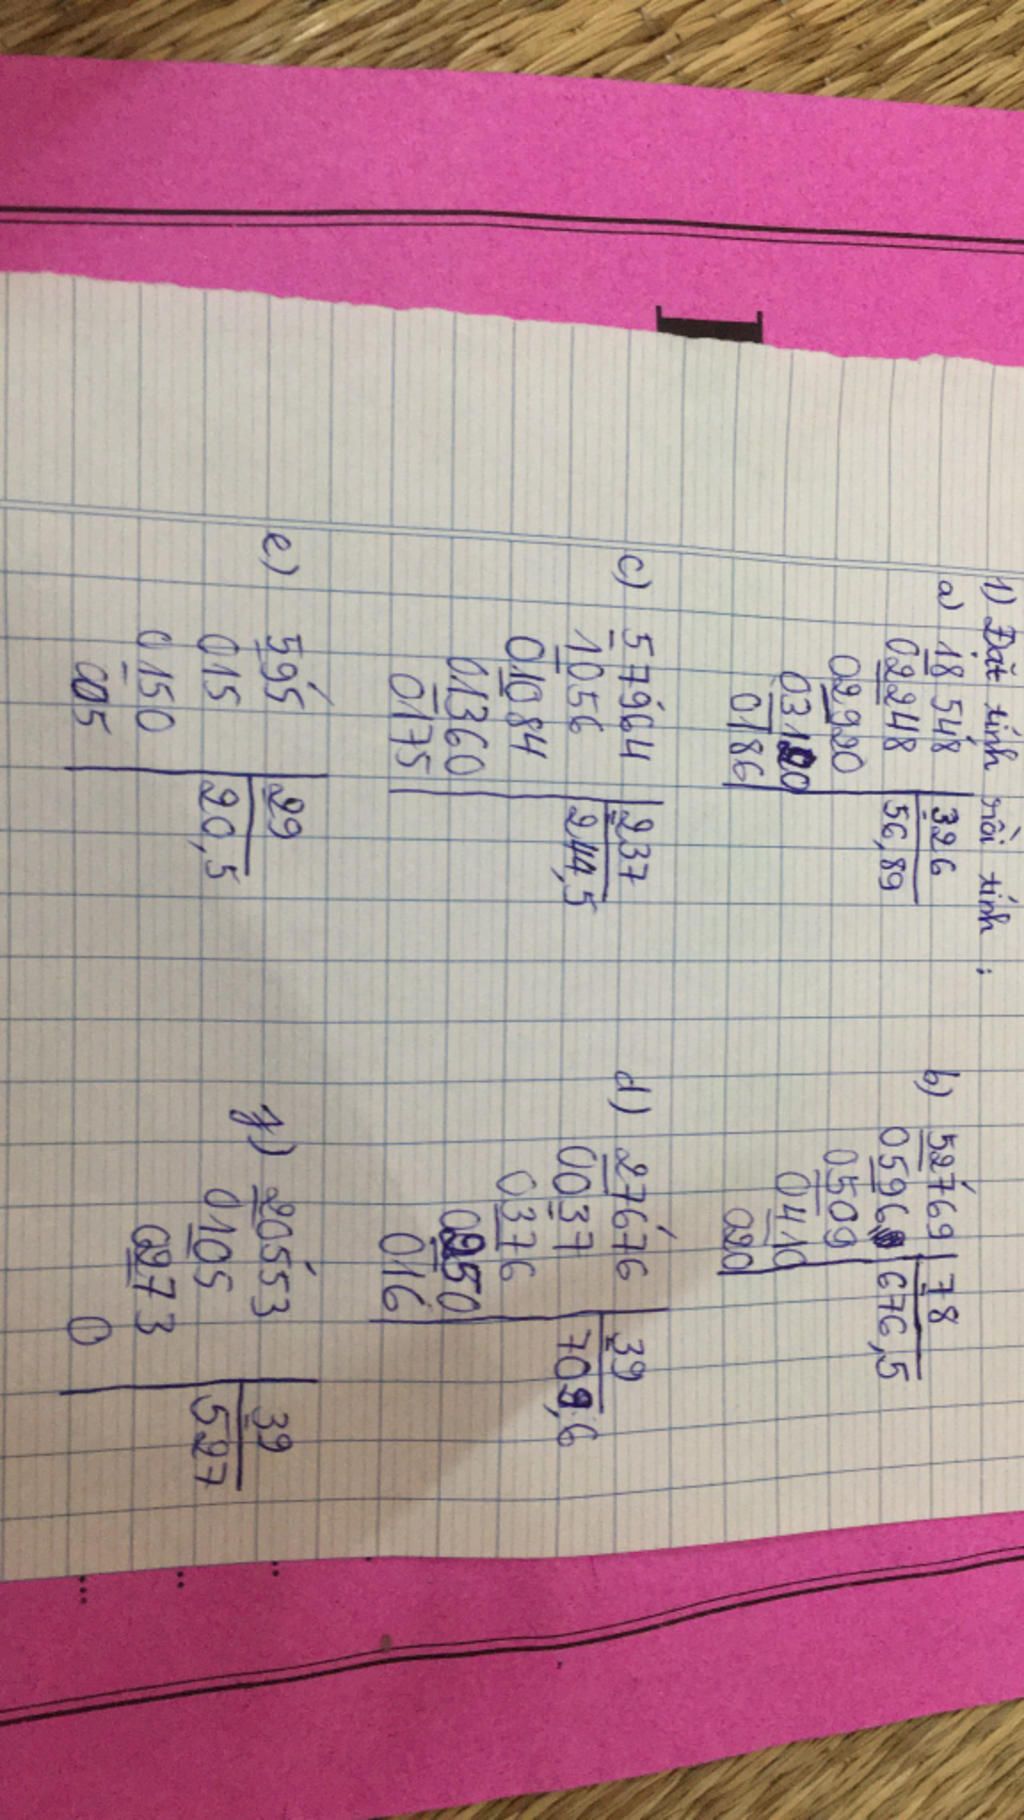 1) Đặt tính rồi tính :
a) 18548 | 326
02248 | 56,89
02920
03120
0186
b) 52769 | 78
0596 | 676,5
0509
0410
020
c) 57964 | 237
1056 | 244,5
01084
01360
0175
d) 27676 | 39
0037 | 709,6
0376
0250
016
e) 595 | 29
015 | 20,5
0150
005
g) 20553 | 39
0105 | 527
0273
0